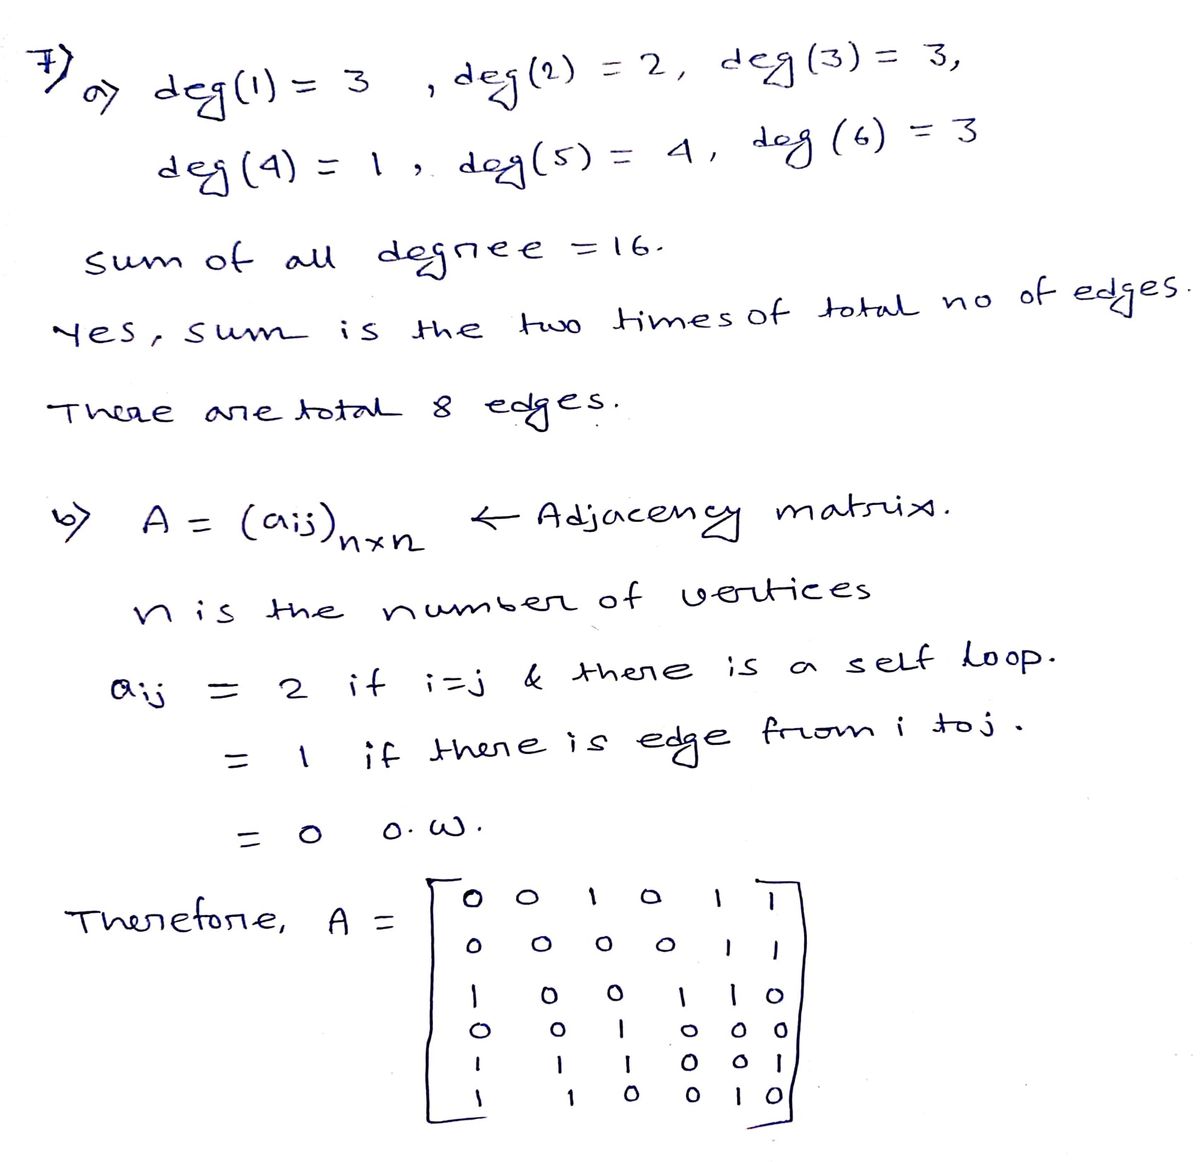 7) a) deg(1) = 3 , deg(2) = 2, deg(3) = 3,
deg(4) = 1 , deg(5) = 4, deg(6) = 3
Sum of all degree = 16.
Yes, sum is the two times of total no of edges.
There are total 8 edges.
b) A = (aij)n×n ← Adjacency matrix.
n is the number of vertices
aij = 2 if i=j & there is a self loop.
= 1 if there is edge from i to j.
= 0 o.w.
Therefore, A =
0 0 1 0 1 1
0 0 0 0 1 1
1 0 0 1 1 0
0 0 1 0 0 0
1 1 1 0 0 1
1 1 0 0 1 0